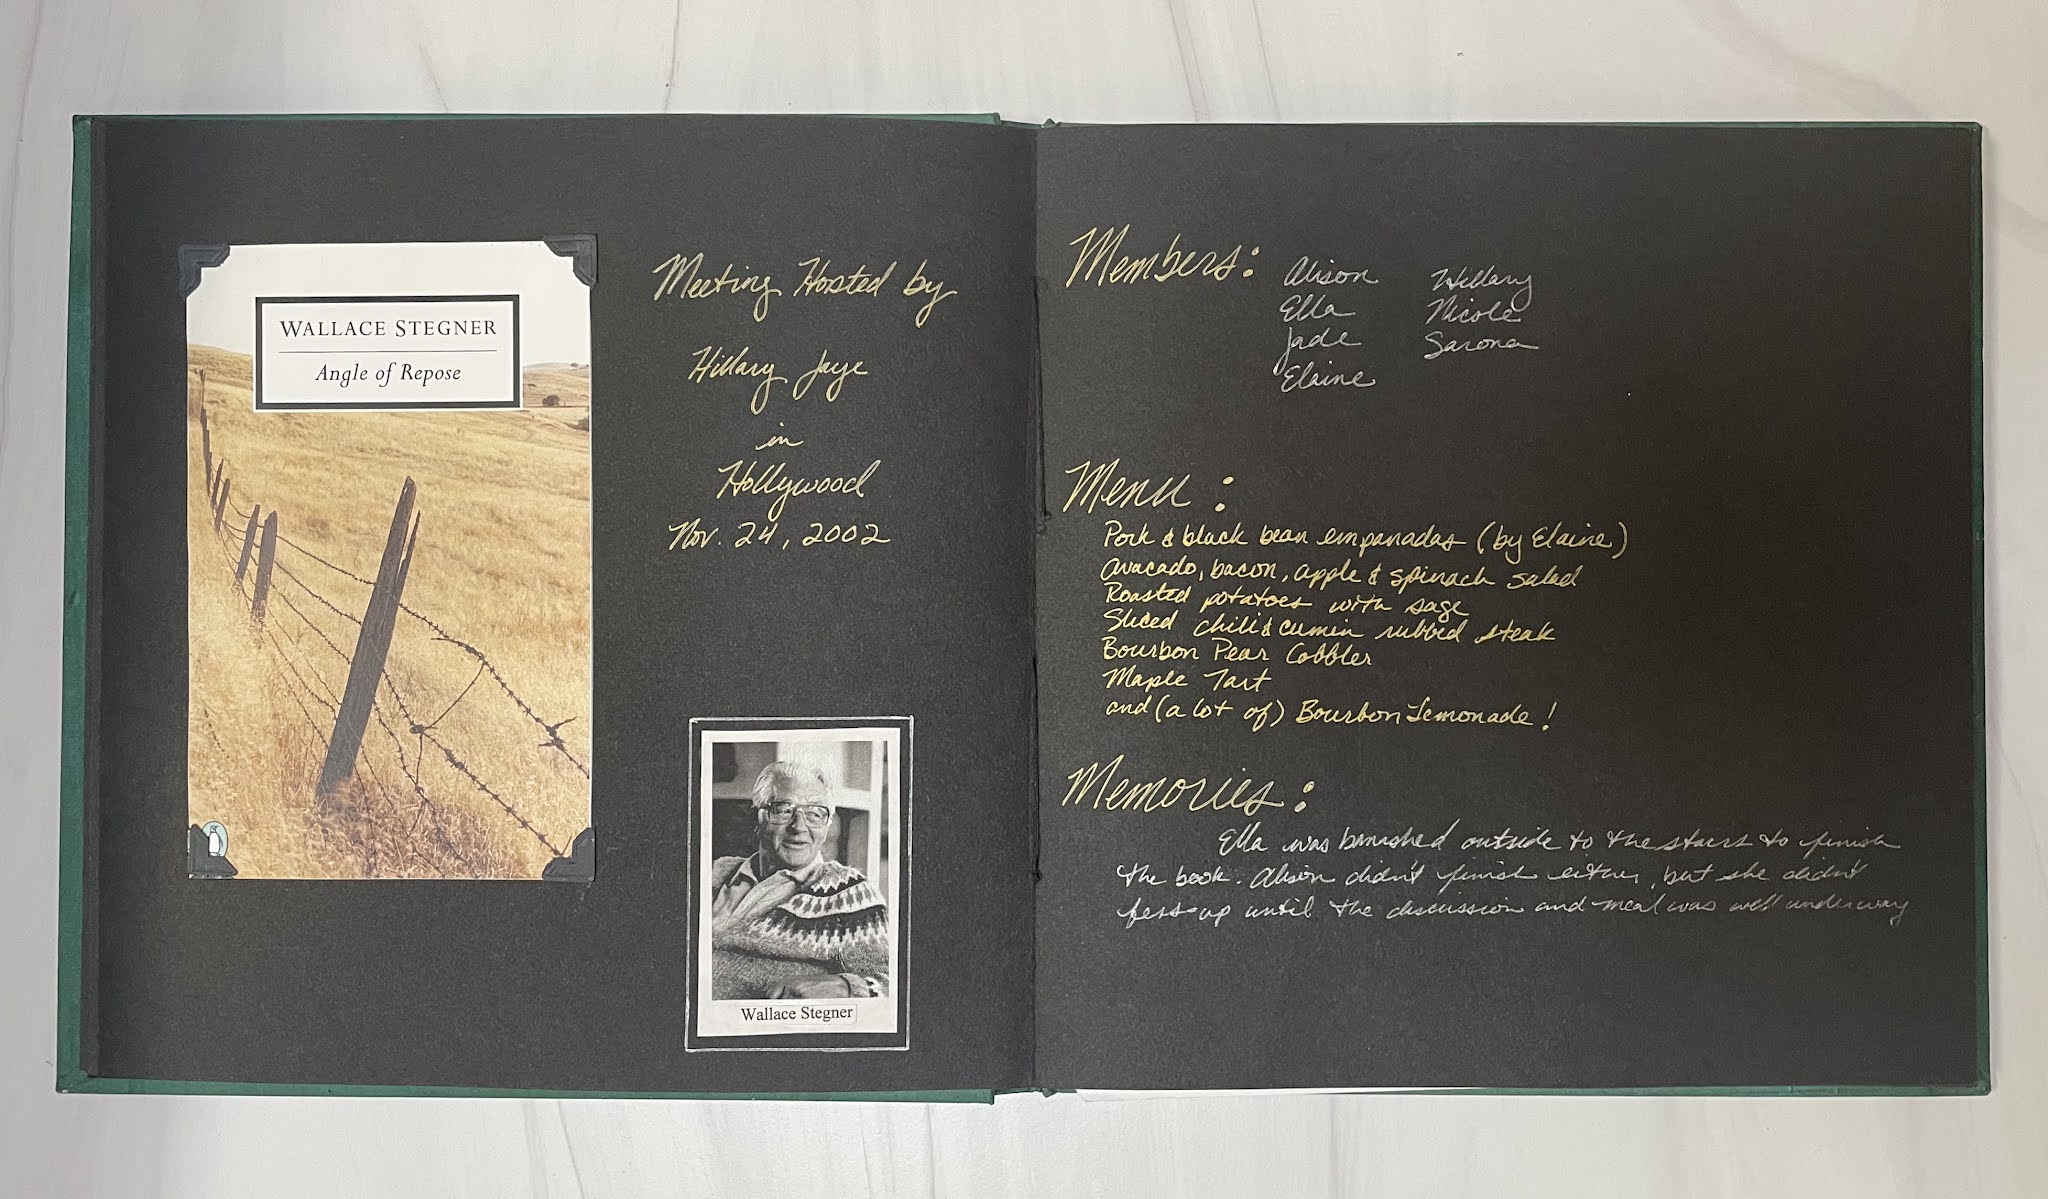 WALLACE STEGNER
Angle of Repose
Meeting Hosted by
Hillary Jaye
in
Hollywood
Nov. 24, 2002
Wallace Stegner
Members:
Alison Hillary
Ella Nicole
Jade Sarona
Elaine
Menu:
Pork & black bean empanadas (by Elaine)
Avacado, bacon, apple & spinach salad
Roasted potatoes with sage
Sliced chili & cumin rubbed steak
Bourbon Pear Cobbler
Maple Tart
and (a lot of) Bourbon Lemonade!
Memories:
Ella was banished outside to the stairs to finish
the book. Alison didn't finish either, but she didn't
fess-up until the discussion and meal was well underway